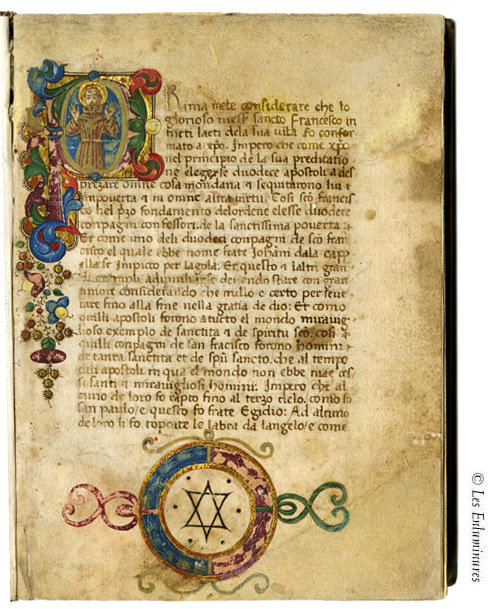 Rima mete considerare che lo
glorioso mess sancto Francesco in
tucti lacti dela sua vita fo confor
mato a xpo. Impero che come xpo
nel principio de la sua predicatio
ne elegerse duodece apostoli a des
prezare omne cosa mondana et sequitirono lui i
inpoverta et in omne altra virtu. Cosi sco francis
co nel pzo fondamento delordene elesse duodece
conpagni confessori de la sanctissima poverta :
Et como uno deli duodeci conpagni de sco fran
cisco el quale ebbe nome frate Johani dala capp
ella se impicco per la gola. Et questo a laltri gran
de exempli
amore considerando che nullo e certo per seve
rare fino alla fine nella gratia de dio: Et como
quilli apostoli forono a tucto el mondo miravig
lioso exemplo de sanctita et de spiritu sco, cosi
quilli conpagni de san fracisco forono homini
de tanta sanctita et de spu sancto, che al tempo
deli apostoli in qua el mondo non ebbe mae cos
si santi et miravigliosi homini: Impero che al
cuno de loro fo rapto fino al terzo cielo, como fo
san paulo/e questo fo frate Egidio: Ad alcuno
de loro li fo tochate le labra da langelo/e come
© Les Enluminures